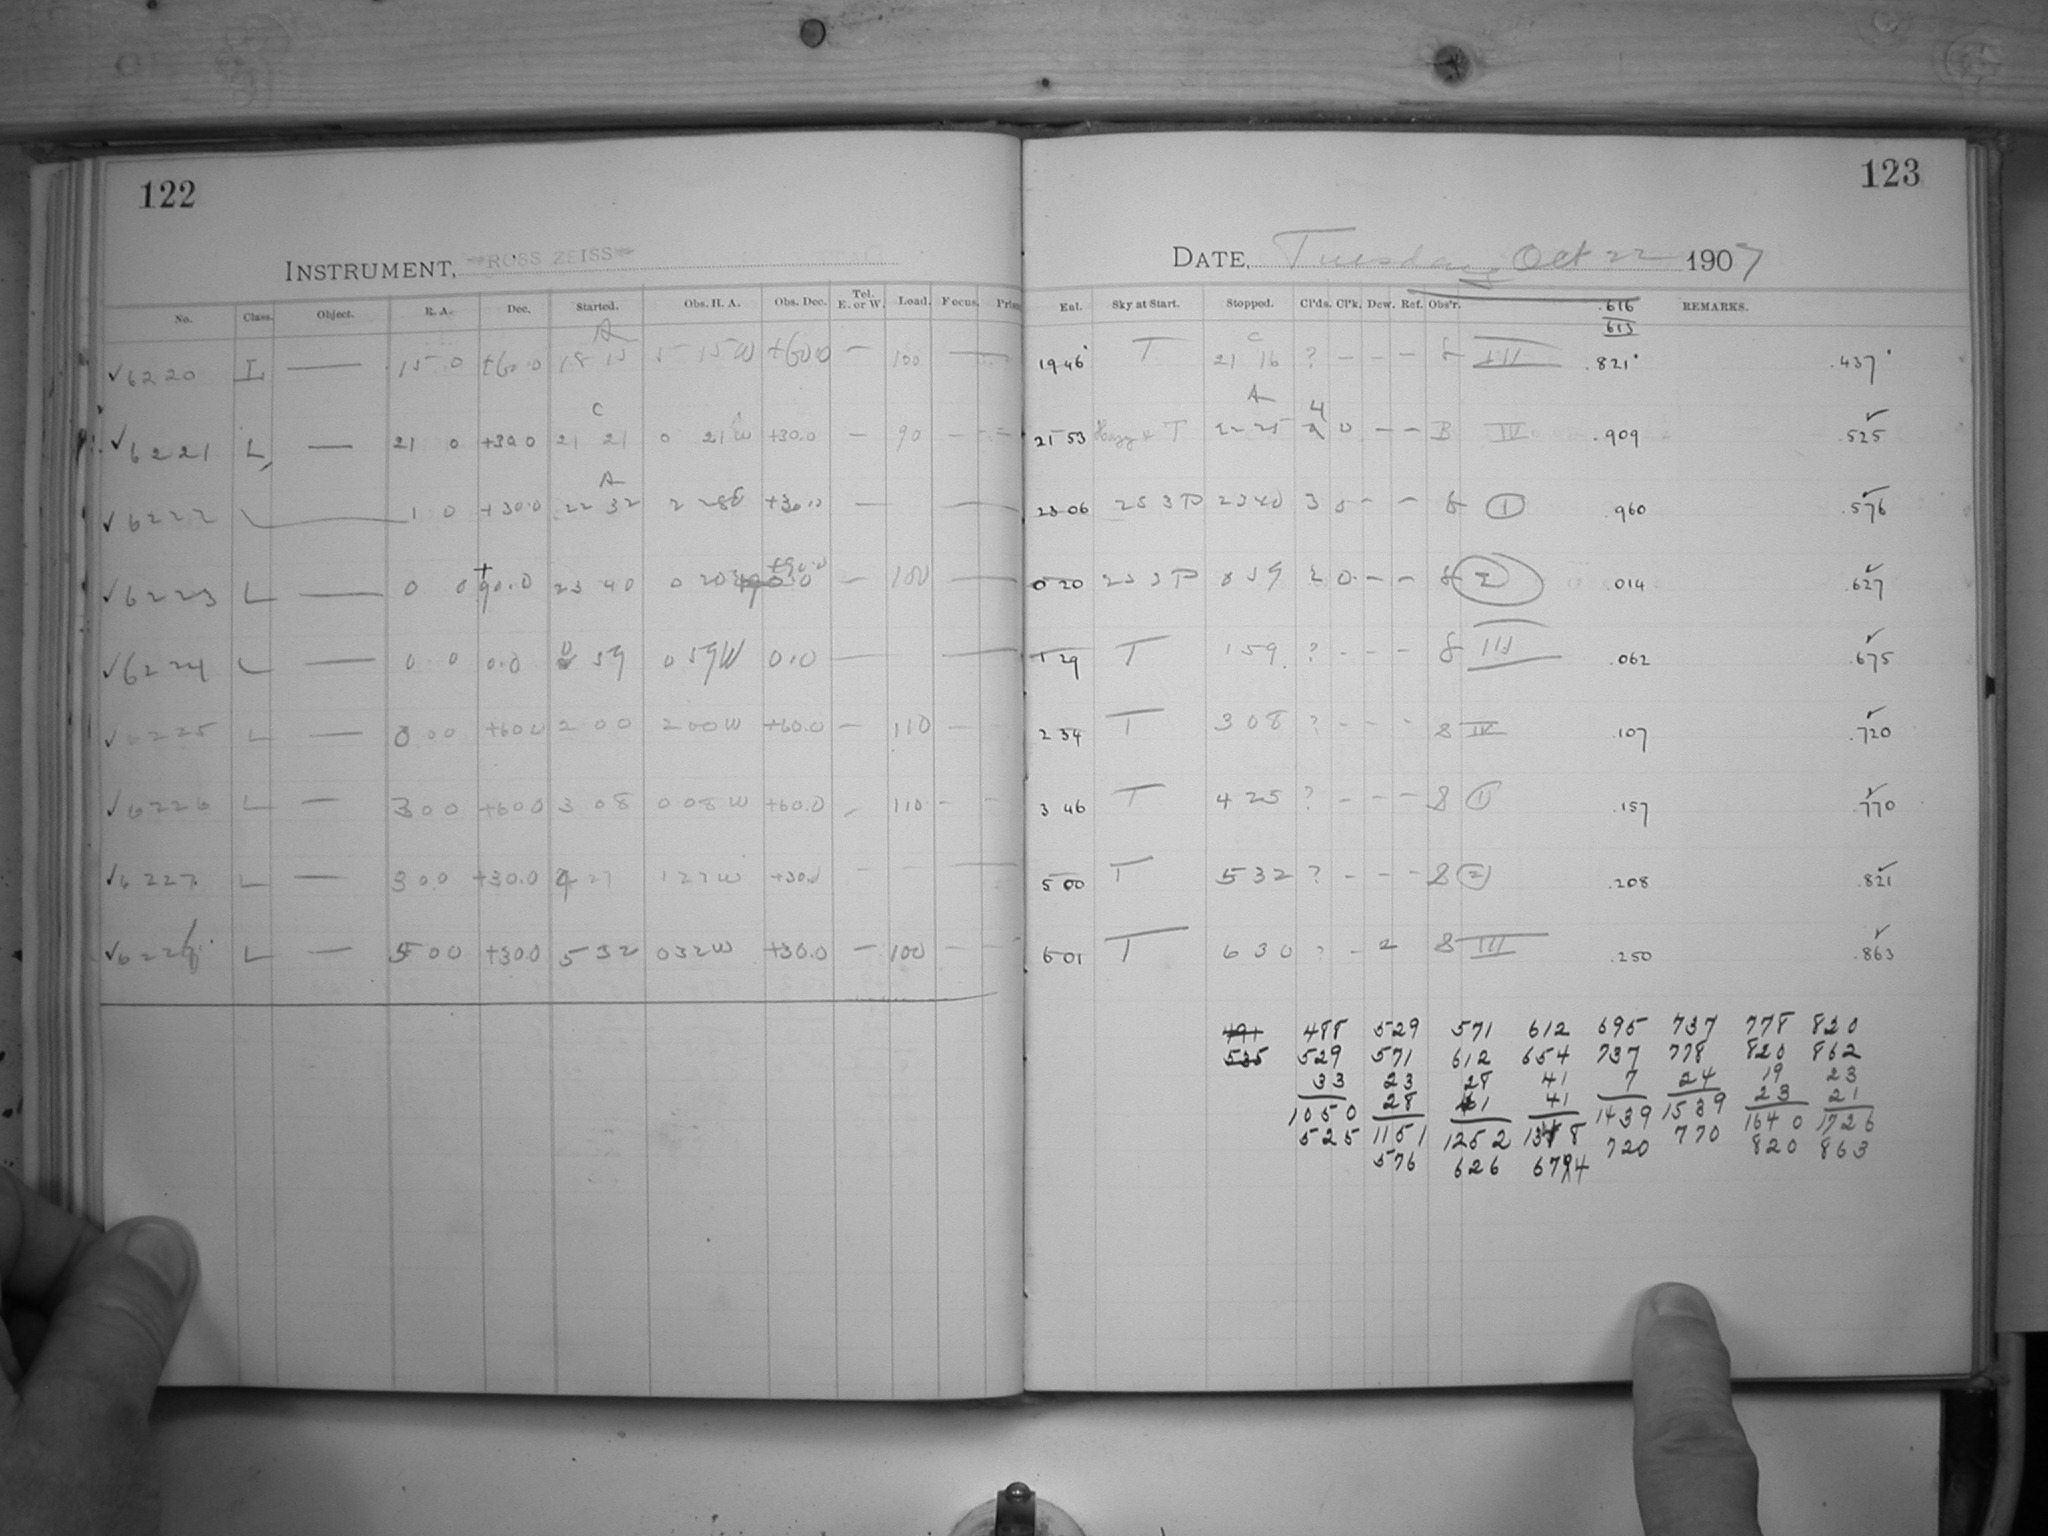 122
INSTRUMENT, ROSS ZEISS
No. Class. Object. R. A. Dec. Started. Obs. H. A. Obs. Dec. Tel. E. or W. Load. Focus.
A
✓6220 L — 15 0 +60.0 18 15 5 15W +60.0 — 100 —
C
✓6221 L — 21 0 +30.0 21 21 0 21W +30.0 — 90 — -
A
✓6222 1 0 +30.0 22 32 +30.0 — —
+ +90.0
✓6223 L — 0 0 90.0 23 40 — 100 —
✓6224 L — 0 0 0.0 0 59 0 59W 0.0 — —
✓6225 L — 0 00 +60.0 2 00 2 00W +60.0 — 110 — -
✓6226 L — 3 00 +60.0 3 08 0 08W +60.0 - 110 - -
✓6227 L — 3 00 +30.0 4 27 1 27W +30.0 - - - —
✓6228 L — 5 00 +30.0 5 32 0 32W +30.0 — 100 - -
123
DATE, Tuesday Oct 22 1907
Ent. Sky at Start. Stopped. Cl'ds. Cl'k. Dew. Ref. Obs'r. REMARKS.
.616
613
C
19 46 T 21 16 ? - - - III .821 .437
A
4
21 53 Hazy & T 22 25 0 - - B IV .909 .525
23 06 23 40 3 - - I .960 .576
0 20 0 59 2 0 - - 2 .014 .627
1 29 T 1 59. ? - - - III .062 .675
2 34 T 3 08 ? - - - 8 IV .107 .720
3 46 T 4 25 ? - - - 8 1 .157 .770
5 00 T 5 32 ? - - - 8 2 .208 .821
6 01 T 6 30 ? - 2 8 III .250 .863
491 488 529 571 612 695 737 778 820
535 529 571 612 654 737 778 820 862
33 23 28 41 7 24 19 23
28 41 41 23 21
1050 1151 1252 1348 1439 1539 1640 1726
525 576 626 674 720 770 820 863